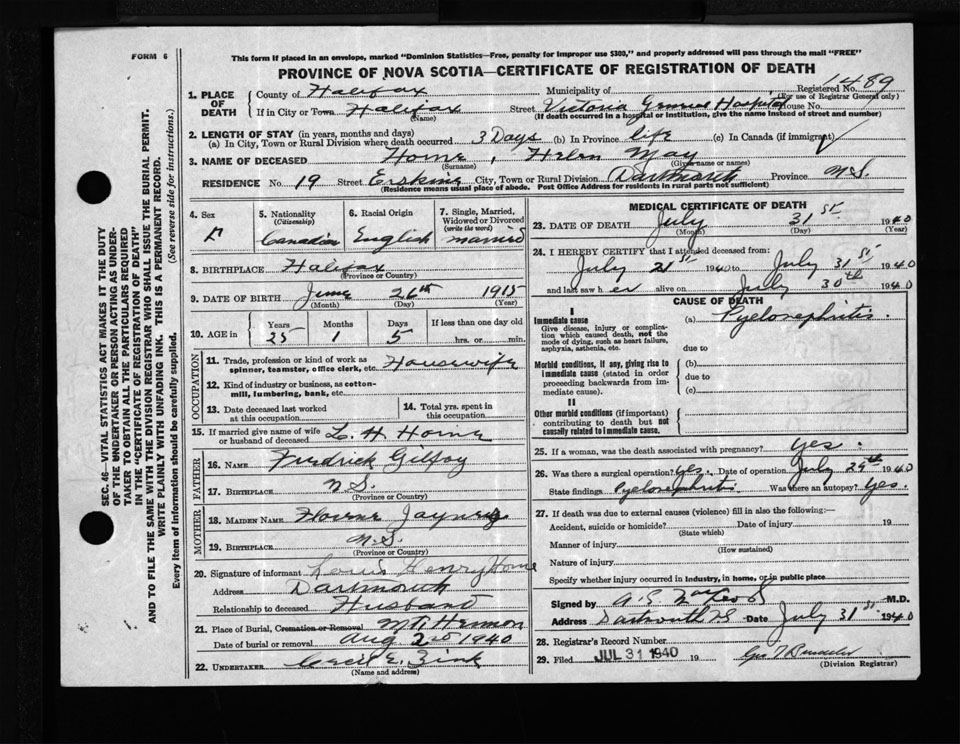 FORM 6
This form if placed in an envelope, marked "Dominion Statistics—Free, penalty for improper use $300," and properly addressed will pass through the mail "FREE"
PROVINCE OF NOVA SCOTIA—CERTIFICATE OF REGISTRATION OF DEATH
1. PLACE OF DEATH
County of Halifax Municipality of Registered No. 1489
(For use of Registrar General only)
If in City or Town Halifax Street Victoria General Hospital House No.
(Name) (If death occurred in a hospital or institution, give the name instead of street and number)
2. LENGTH OF STAY (in years, months and days)
(a) In City, Town or Rural Division where death occurred 3 Days (b) In Province life (c) In Canada (if immigrant)
3. NAME OF DECEASED Horne, Helen May
(Surname) (Given name or names)
RESIDENCE No. 19 Street Erskine City, Town or Rural Division Dartmouth Province N.S.
(Residence means usual place of abode. Post Office Address for residents in rural parts not sufficient)
4. Sex
F
5. Nationality
(Citizenship)
Canadian
6. Racial Origin
English
7. Single, Married, Widowed or Divorced
(write the word)
married
8. BIRTHPLACE Halifax
(Province or Country)
9. DATE OF BIRTH June 26th 1915
(Month) (Day) (Year)
10. AGE in Years Months Days If less than one day old
25 1 5 hrs. or min.
OCCUPATION
11. Trade, profession or kind of work as spinner, teamster, office clerk, etc. Housewife
12. Kind of industry or business, as cotton-mill, lumbering, bank, etc.
13. Date deceased last worked at this occupation
14. Total yrs. spent in this occupation
15. If married give name of wife or husband of deceased L. H. Horne
FATHER
16. NAME Fredrick Gilfoy
17. BIRTHPLACE N.S.
(Province or Country)
MOTHER
18. MAIDEN NAME
19. BIRTHPLACE N.S.
(Province or Country)
20. Signature of informant Louis Henry Horne
Address Dartmouth
Relationship to deceased Husband
21. Place of Burial, Cremation or Removal Mt. Hermon
Date of burial or removal Aug 2nd 1940
22. UNDERTAKER Cecil E. Zink
(Name and address)
MEDICAL CERTIFICATE OF DEATH
23. DATE OF DEATH July 31st 1940
(Month) (Day) (Year)
24. I HEREBY CERTIFY that I attended deceased from:
July 21st 1940 to July 31st 1940
and last saw her alive on July 30th 1940
CAUSE OF DEATH
I
Immediate cause (a) Pyelonephritis.
Give disease, injury or complication which caused death, not the mode of dying, such as heart failure, asphyxia, asthenia, etc.
due to
Morbid conditions, if any, giving rise to immediate cause (stated in order proceeding backwards from immediate cause).
(b)
due to
(c)
II
Other morbid conditions (if important) contributing to death but not causally related to immediate cause.
25. If a woman, was the death associated with pregnancy? Yes.
26. Was there a surgical operation? Yes. Date of operation July 29th 1940
State findings Pyelonephritis Was there an autopsy? Yes.
27. If death was due to external causes (violence) fill in also the following:—
Accident, suicide or homicide? Date of injury 19
(State which)
Manner of injury
(How sustained)
Nature of injury
Specify whether injury occurred in industry, in home, or in public place
Signed by M.D.
Address Dartmouth NS Date July 31st 1940
28. Registrar's Record Number
29. Filed JUL 31 1940 19
(Division Registrar)
SEC. 46—VITAL STATISTICS ACT MAKES IT THE DUTY
OF THE UNDERTAKER OR PERSON ACTING AS UNDER-
TAKER TO OBTAIN ALL THE PARTICULARS REQUIRED
IN THE "CERTIFICATE OF REGISTRATION OF DEATH"
AND TO FILE THE SAME WITH THE DIVISION REGISTRAR WHO SHALL ISSUE THE BURIAL PERMIT.
WRITE PLAINLY WITH UNFADING INK. THIS IS A PERMANENT RECORD.
Every item of information should be carefully supplied. (See reverse side for instructions.)